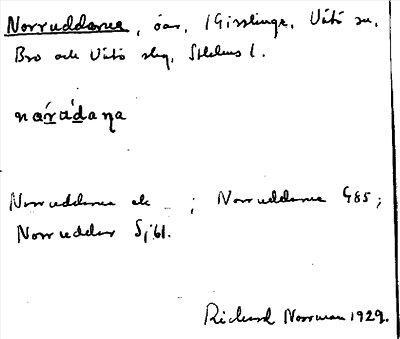 Norruddarna, öar, (Gisslinge, Vätö sn,
Bro och Vätö skg, Sthlms l.
nórúdana
Norruddarna ek – ; Norruddarna G85;
Norruddar Sjöbl.
Richard Norrman 1929.